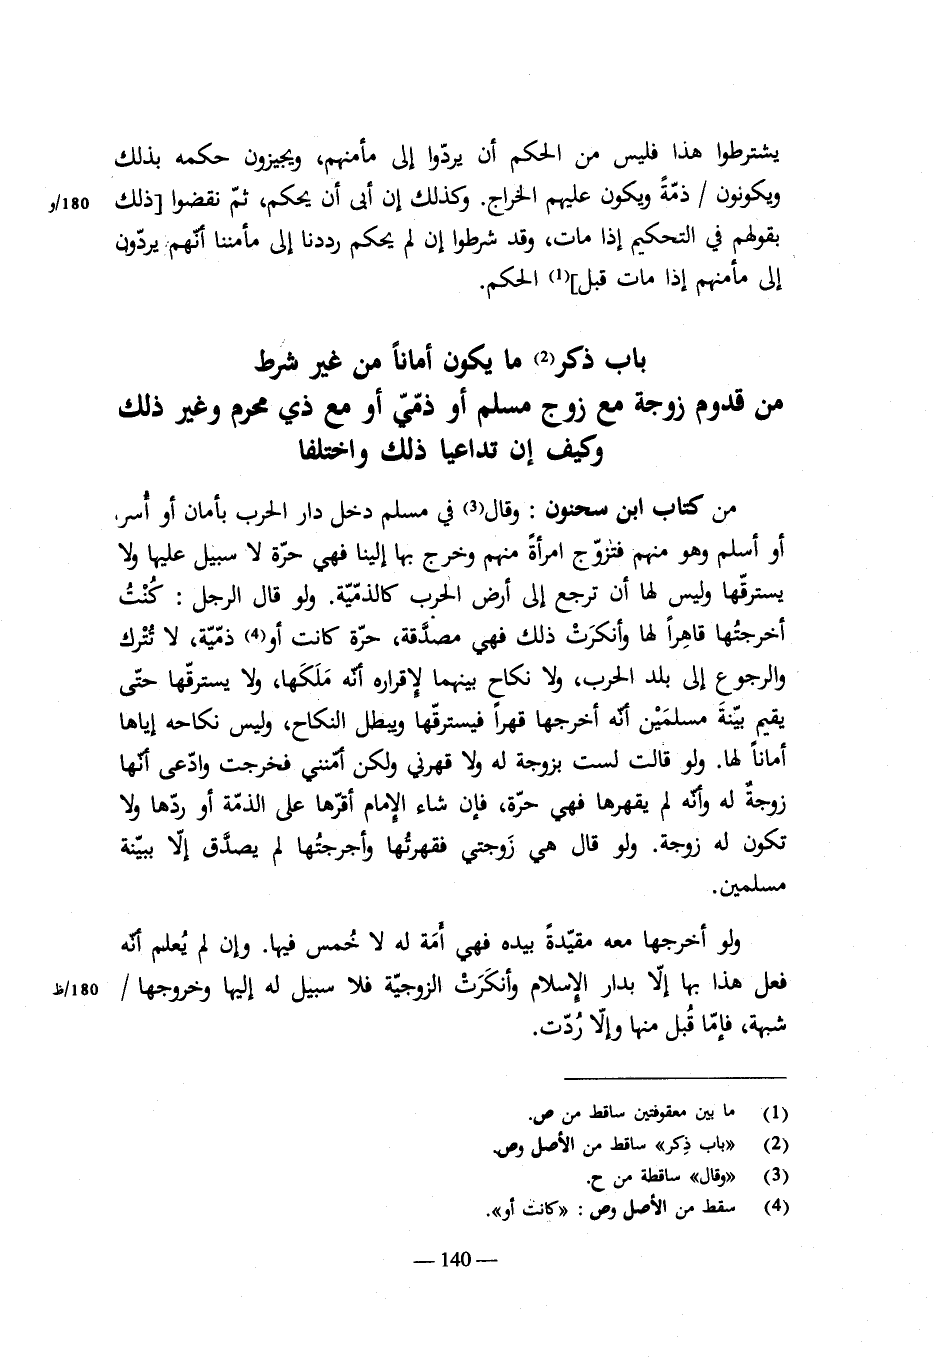 يشترطوا هذا فليس من الحكم أن يردّوا إلى مأمنهم، ويجيزون حكمه بذلك
ويكونون / ذمّةً ويكون عليهم الخراج. وكذلك إن أبى أن يحكم، ثمّ نقضوا [ذلك 180/و
بقولهم في التحكيم إذا مات، وقد شرطوا إن لم يحكم رددنا إلى مأمننا أنّهم يردّون
إلى مأمنهم إذا مات قبل](1) الحكم.
باب ذكر(2) ما يكون أماناً من غير شرط
من قدوم زوجة مع زوج مسلم أو ذمّيّ أو مع ذي محرم وغير ذلك
وكيف إن تداعيا ذلك واختلفا
من كتاب ابن سحنون : وقال(3) في مسلم دخل دار الحرب بأمان أو أُسر،
أو أسلم وهو منهم فتزوّج امرأةً منهم وخرج بها إلينا فهي حرّة لا سبيل عليها ولا
يسترقّها وليس لها أن ترجع إلى أرض الحرب كالذمّيّة. ولو قال الرجل : كُنْتُ
أخرجتُها قاهِراً لها وأنكرَتْ ذلك فهي مصدَّقة، حرّة كانت أو(4) ذمّيّة، لا تُتْرك
والرجوع إلى بلد الحرب، ولا نكاح بينهما لإقراره أنّه مَلَكَها، ولا يسترقّها حتّى
يقيم بيّنةَ مسلمَيْن أنّه أخرجها قهراً فيسترقّها ويبطل النكاح، وليس نكاحه إياها
أماناً لها. ولو قالت لست بزوجة له ولا قهرني ولكن أمّنني فخرجت وادّعى أنّها
زوجةٌ له وأنّه لم يقهرها فهي حرّة، فإن شاء الإمام أقرّها على الذمّة أو ردّها ولا
تكون له زوجة. ولو قال هي زَوجتي فقهرتُها وأجرجتُها لم يصدَّق إلّا ببيّنة
مسلمين.
ولو أخرجها معه مقيّدةً بيده فهي أَمَة له لا خُمس فيها. وإن لم يُعلم أنّه
فعل هذا بها إلّا بدار الإسلام وأنكَرَتْ الزوجيّة فلا سبيل له إليها وخروجها / 180/ظ
شبهة، فإمّا قُبل منها وإلّا رُدّت.
(1) ما بين معقوفتين ساقط من ص.
(2) «باب ذِكر» ساقط من الأصل وص.
(3) «وقال» ساقطة من ح.
(4) سقط من الأصل وص : «كانت أو».
— 140 —